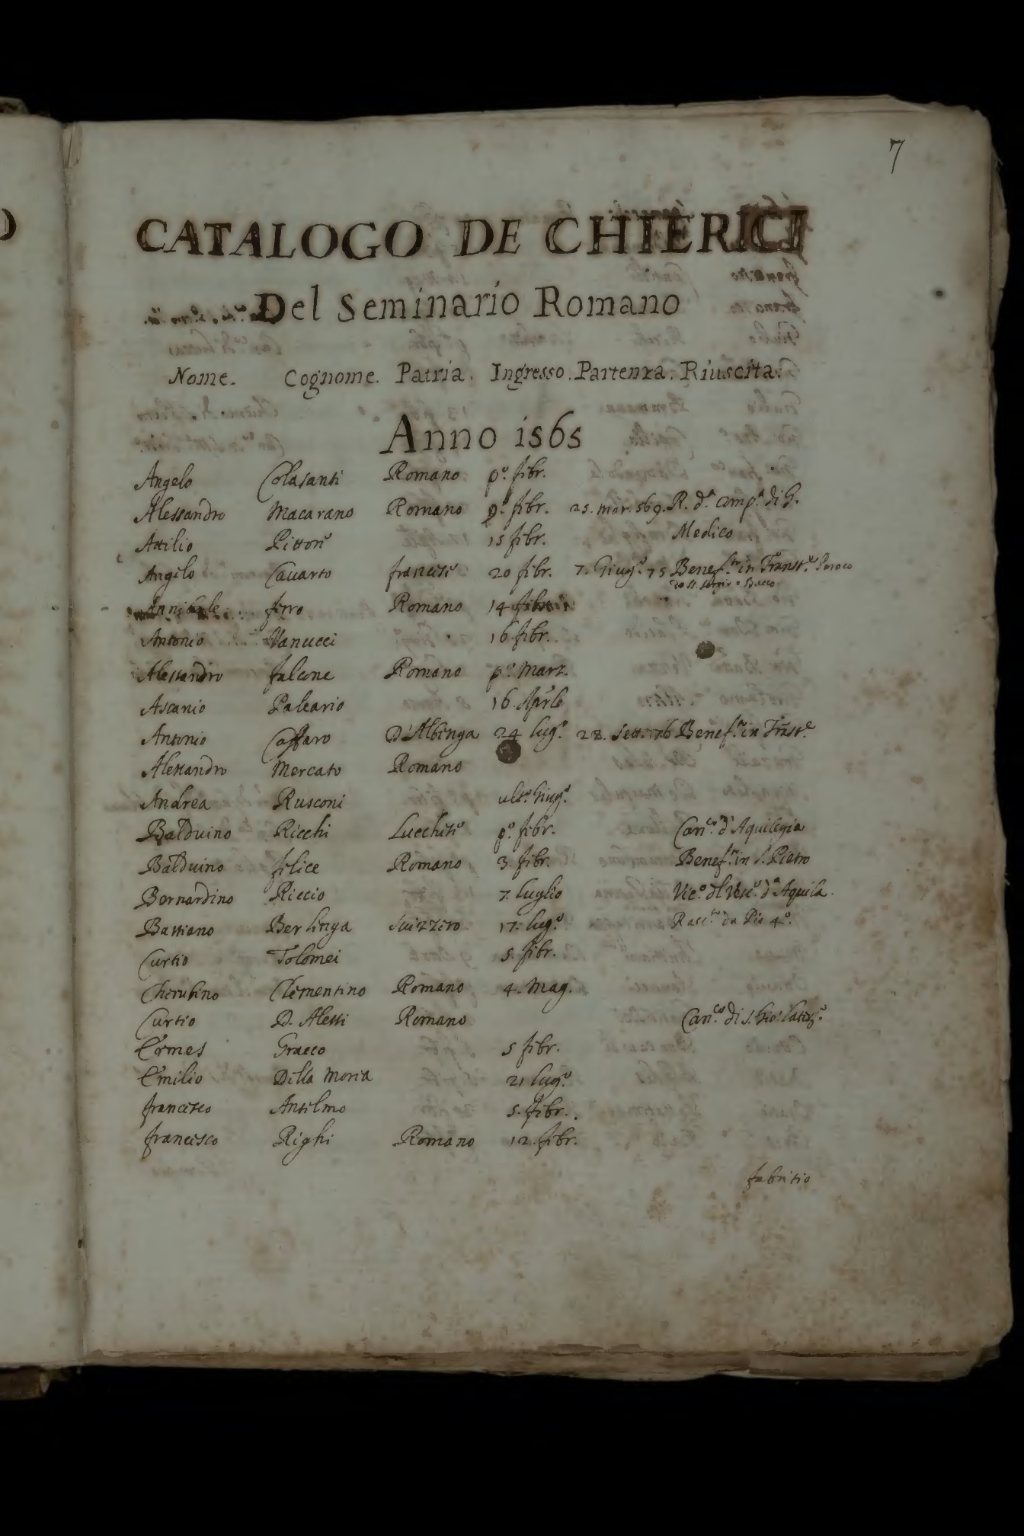 7
CATALOGO DE CHIERICI
Del Seminario Romano
Nome. Cognome. Patria. Ingresso. Partenza. Riuscita.
Anno 1565
Angelo Colasanti Romano p.º fibr.
Alessandro Macarano Romano p.º fibr. 25. mar. 569. R. d.ª comp.ª di G.
Attilio Pittori 15 fibr. Medico
Angelo Cavarto francese 20 fibr. 7. Giug.º 75 Benef.to in Trast.e Paroco
Annibale ferro Romano 14 fibr.
Antonio Vanucci 16 fibr.
Alessandro falcone Romano p.º Marz.
Ascanio Paleario 16 Aprile
Antonio Caffaro D'Albenga 24 lug.º 28. Sett. 76 Benef.to in Trast.e
Alessandro Mercato Romano
Andrea Rusconi ult.º Giug.º
Balduino Ricchi Lucchese p.º fibr. Can.co d'Aquilegia
Balduino felice Romano 3. fibr. Benef.to in S. Pietro
Bernardino Riccio 7. luglio Vic.º del Vesc.º d'Aquila.
Bastiano Berlinga Suizzero 17. lug.º Racc.to da Pio 4.º
Curtio Tolomei 5. fibr.
Cherubino Clementino Romano 4. Mag.
Curtio D. Alessi Romano Can.co di S. Gio: Latt.º
Ermes Graeco 5 fibr.
Emilio Della Moria 21 lug.º
francesco Antelmo 5. fibr.
francesco Righi Romano 12. fibr.
fabritio